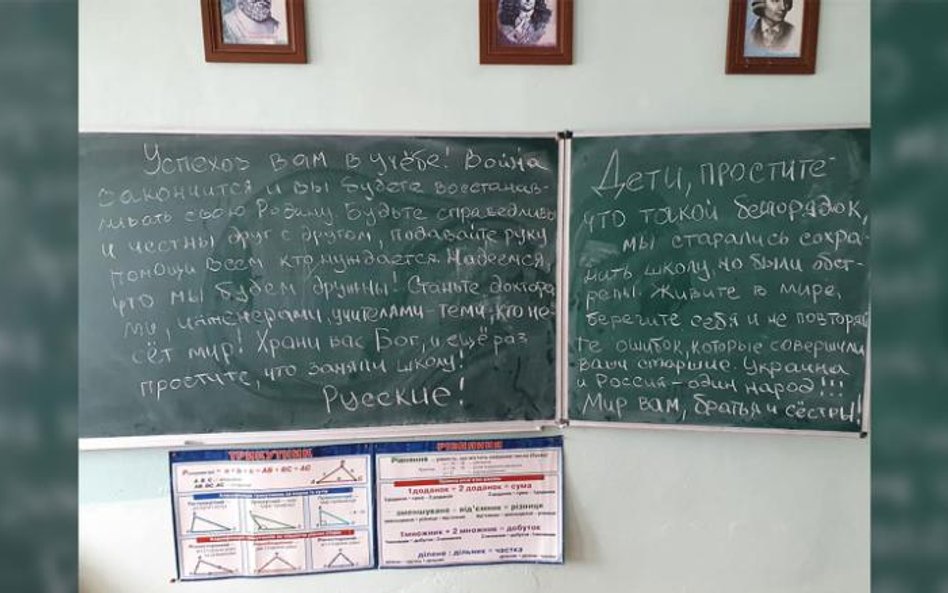 Успехов вам в учёбе! Война
закончится и вы будете восстанав-
ливать свою Родину. Будьте справедливы
и честны друг с другом, подавайте руку
помощи всем кто нуждается. Надеемся,
что мы будем дружны! Станьте доктора-
ми, инженерами, учителями - теми, кто не-
сёт мир! Храни вас Бог, и ещё раз
простите, что заняли школу!
Русские!
Дети, простите
что такой беспорядок,
мы старались сохра-
нить школу, но были обст-
релы. Живите в мире,
берегите себя и не повторяй-
те ошибок, которые совершили
ваши старшие Украина
и Россия - один народ!!!
Мир вам, братья и сёстры!
ТРИКУТНИК
P = a + b + c = AB + BC + AC
РІВНЯННЯ
Рівняння
1доданок + 2 доданок = сума
зменшуване - від'ємник = різниця
1множник × 2 множник = добуток
ділене : дільник = частка